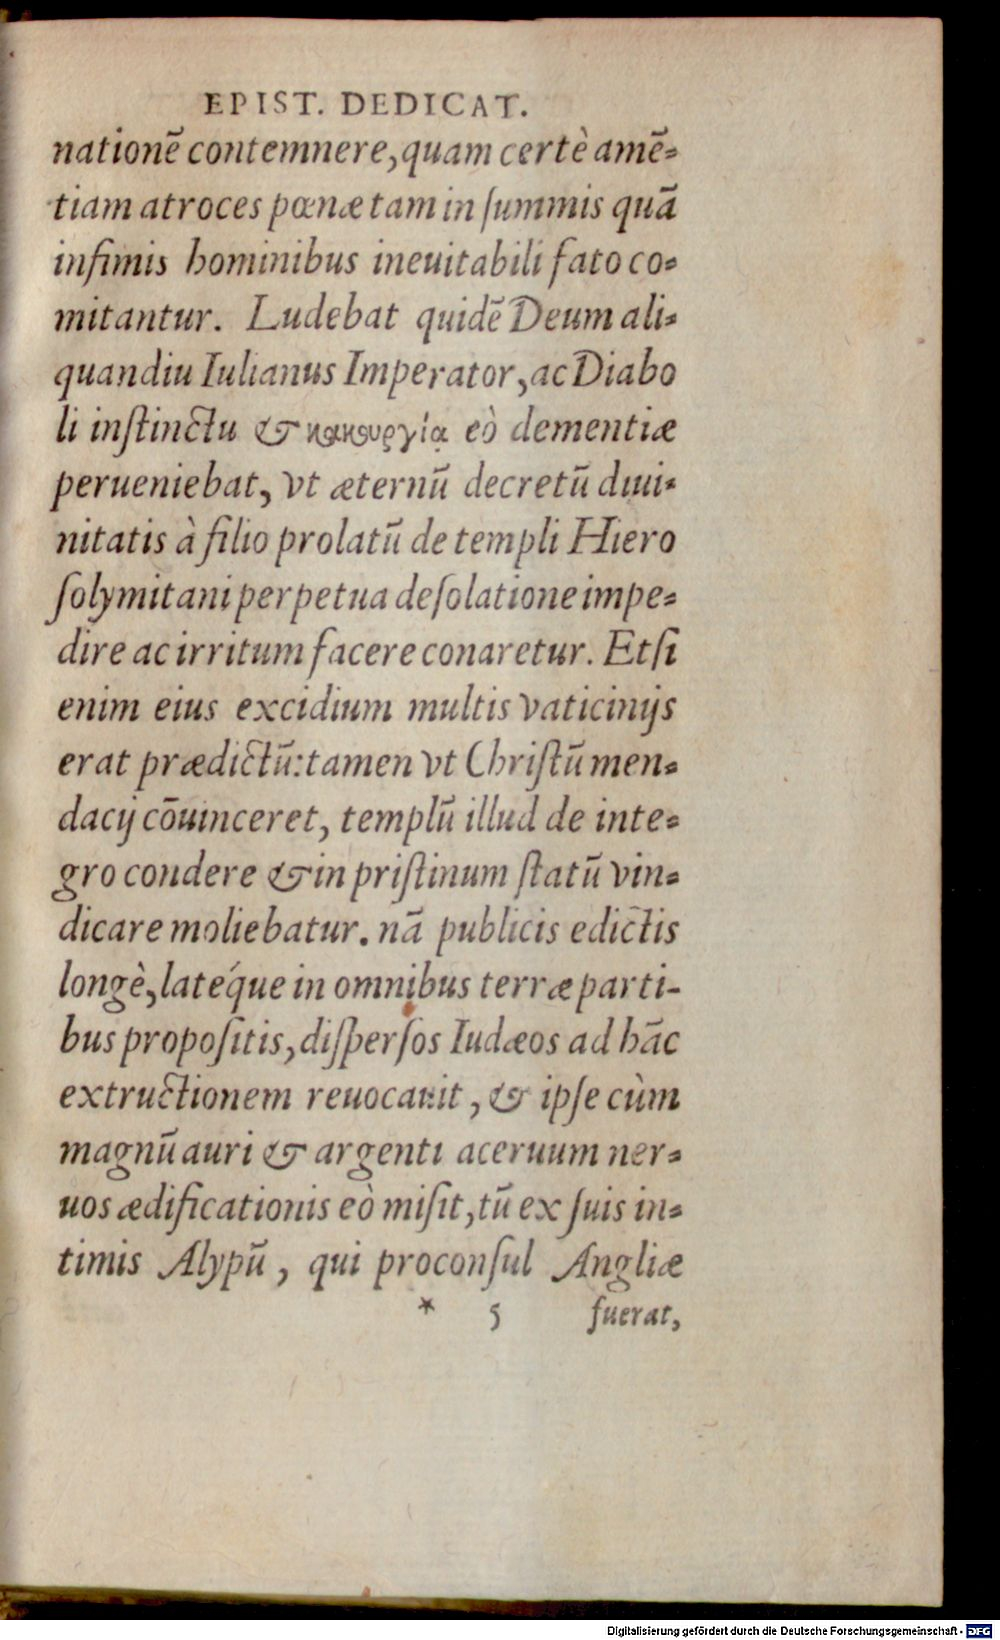 EPIST. DEDICAT.
nationē contemnere, quam certè amē-
tiam atroces pœnæ tam in ſummis quā
infimis hominibus ineuitabili fato co-
mitantur. Ludebat quidē Deum ali-
quandiu Iulianus Imperator, ac Diabo
li inſtinctu & κακουργίᾳ eò dementiæ
perueniebat, vt æternū decretū diui-
nitatis à filio prolatū de templi Hiero
ſolymitani perpetua deſolatione impe-
dire ac irritum facere conaretur. Etſi
enim eius excidium multis vaticinijs
erat prædictū: tamen vt Chriſtū men-
dacij cōuinceret, templū illud de inte-
gro condere & in priſtinum ſtatū vin-
dicare moliebatur. nā publicis edictis
longè, latéque in omnibus terræ parti-
bus propoſitis, diſperſos Iudæos ad hāc
extructionem reuocauit, & ipſe cùm
magnū auri & argenti aceruum ner-
uos ædificationis eò miſit, tū ex ſuis in-
timis Alypū, qui proconſul Angliæ
* 5 fuerat,
Digitalisierung gefördert durch die Deutsche Forschungsgemeinschaft - DFG